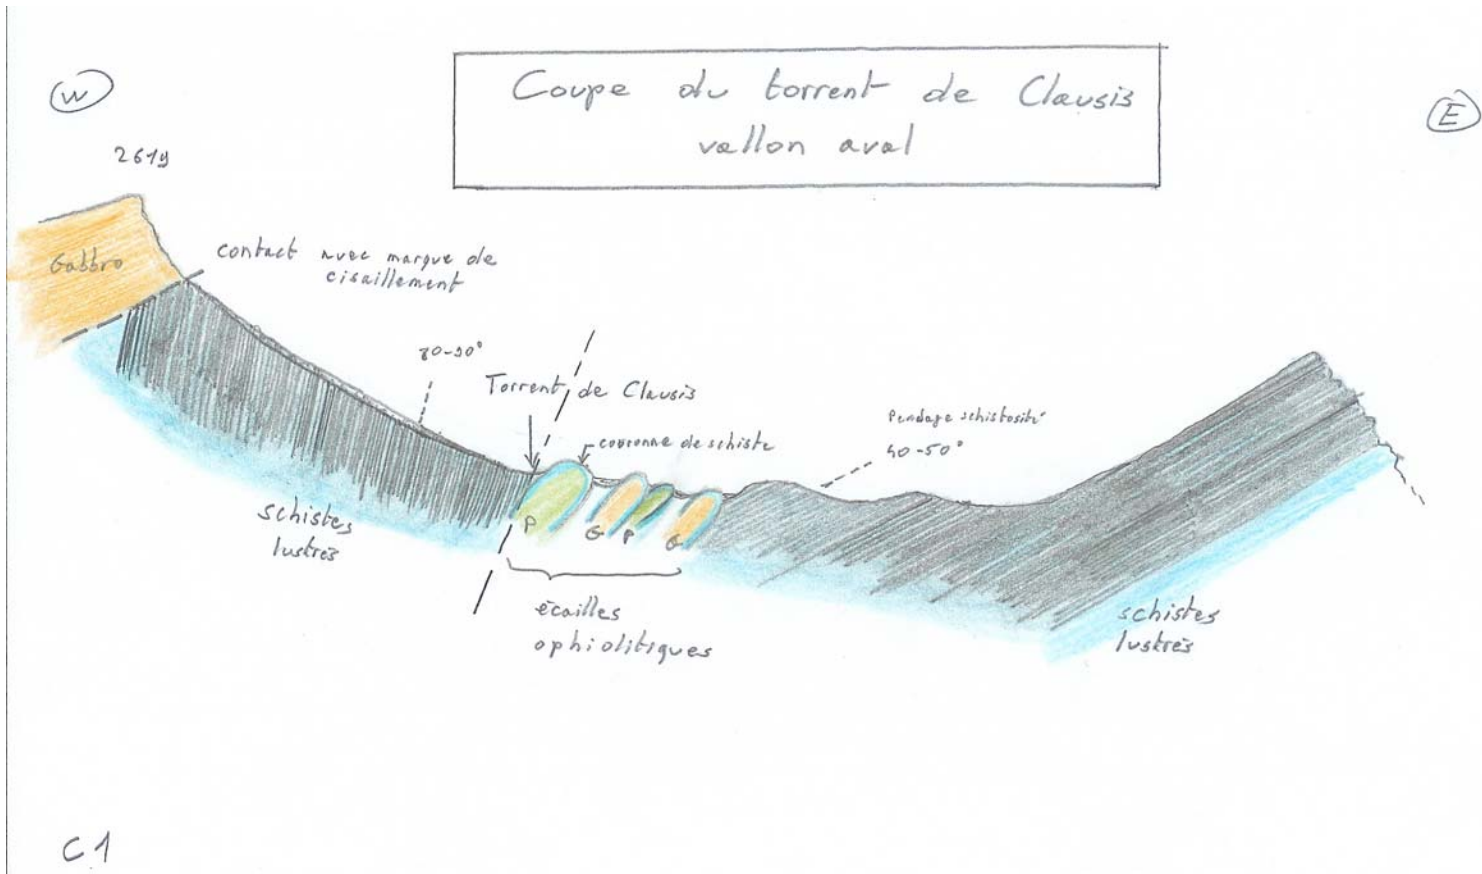 W
Coupe du torrent de Clausis
vallon aval
E
2619
Gabbro
contact avec marque de
cisaillement
80-90°
Torrent de Clausis
couronne de schiste
Pendage schistosité
40-50°
P
G
P
G
schistes
lustrés
écailles
ophiolitiques
schistes
lustrés
C1